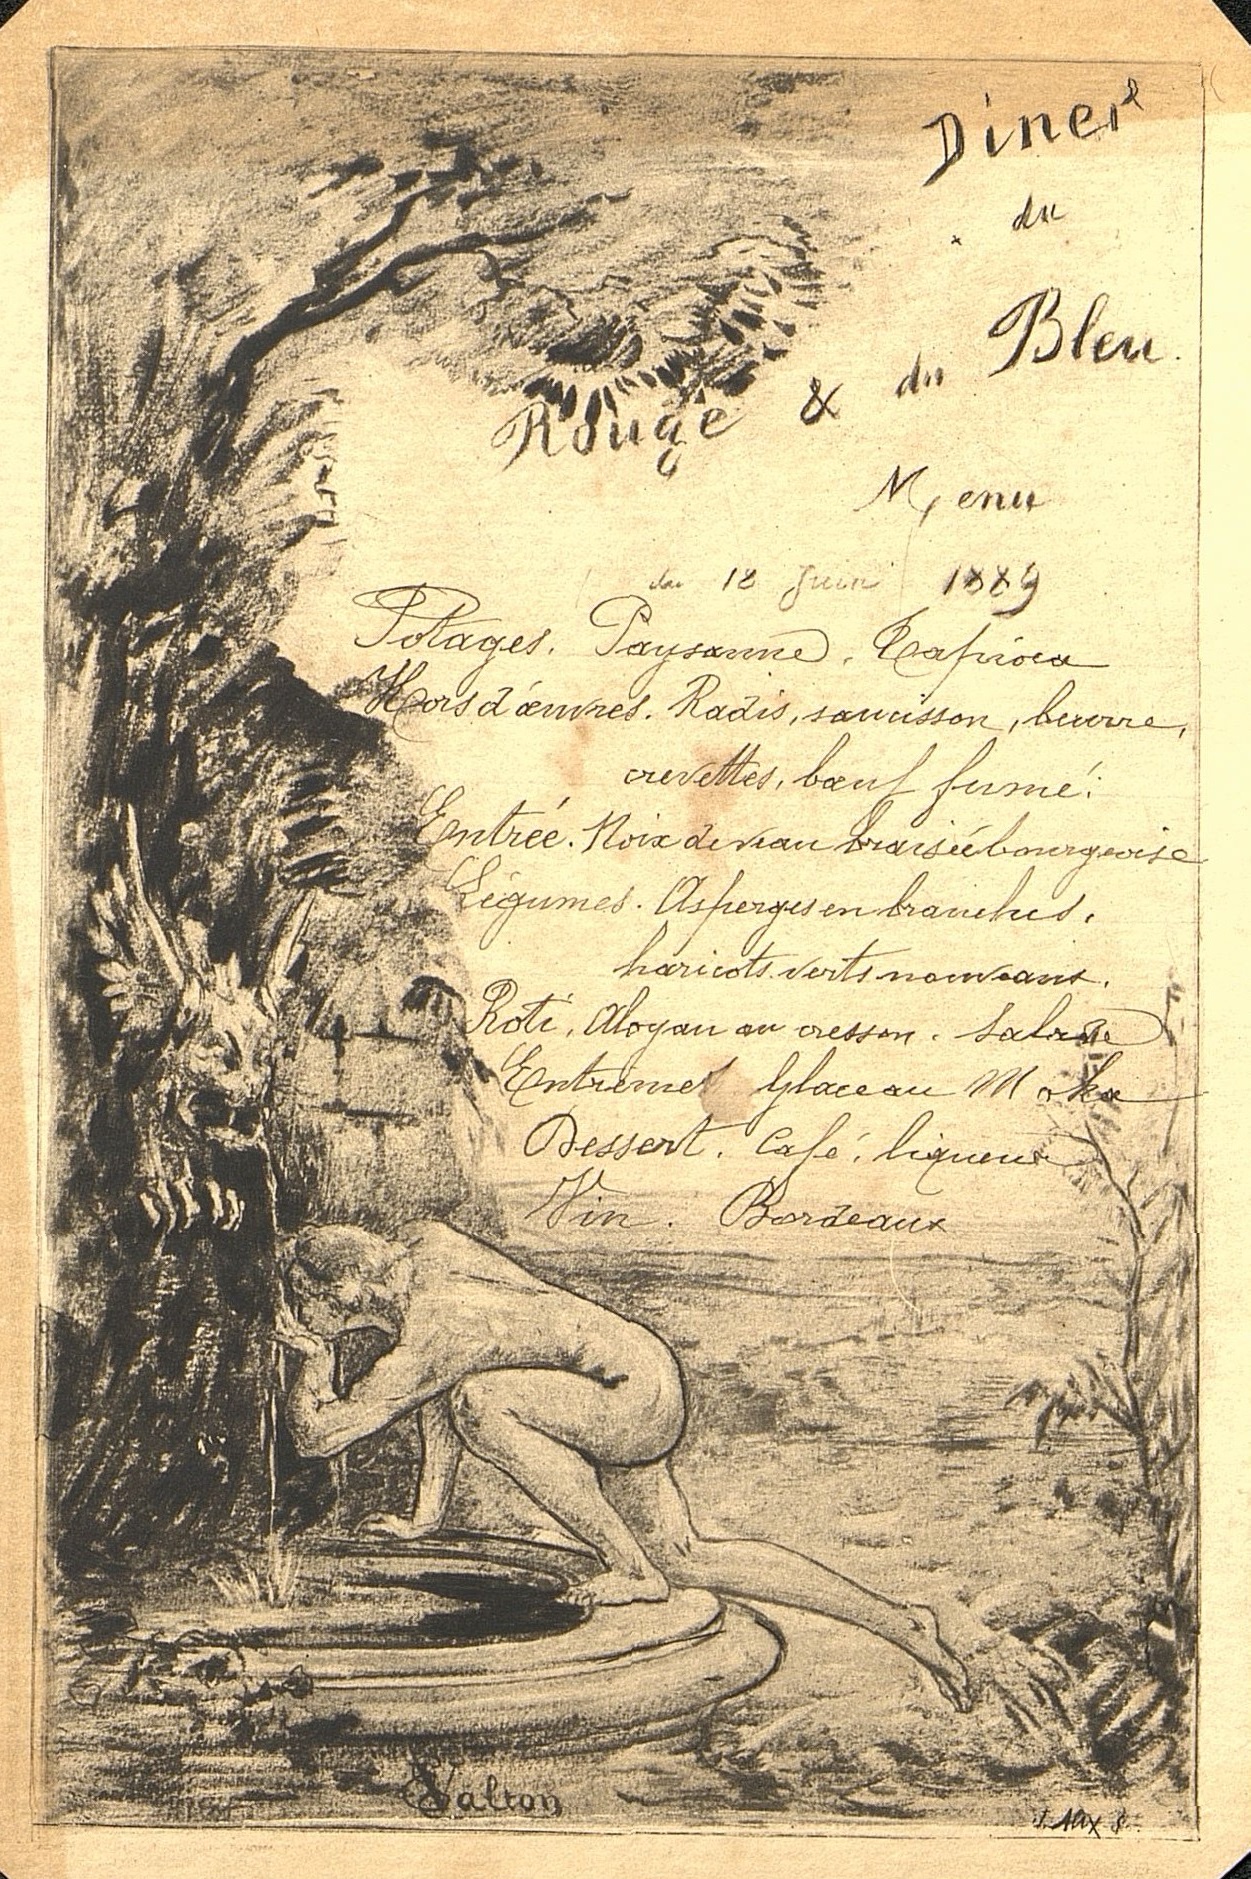 Diner
du
Rouge & du Bleu.
Menu
du 18 Juin 1889
Potages. Paysanne. Tapioca
Hors d'œuvres. Radis, saucisson, beurre,
crevettes, bœuf fumé.
Entrée. Noix de veau braisée bourgeoise
Légumes. Asperges en branches.
haricots verts nouveaux.
Roti. Aloyau au cresson. Salade
Entremet Glace au Moka
Dessert. Café, liqueur
Vin. Bordeaux
E Valton